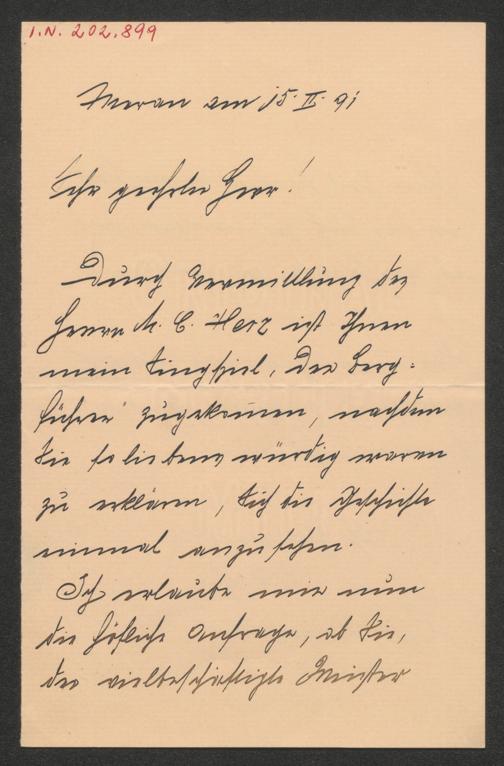 I.N. 202.899
Meran am 15. II. 91
Sehr geehrter Herr!
Durch Vermittlung des
Herrn M. C. Herz ist Ihnen
mein Singspiel, "Der Berg-
führer" zugekommen, nachdem
Sie so liebenswürdig waren
zu erklären, sich die Geschichte
einmal anzusehen.
Ich erlaube mir nun
die höfliche Anfrage, ob Sie,
der vielbeschäftigte Meister